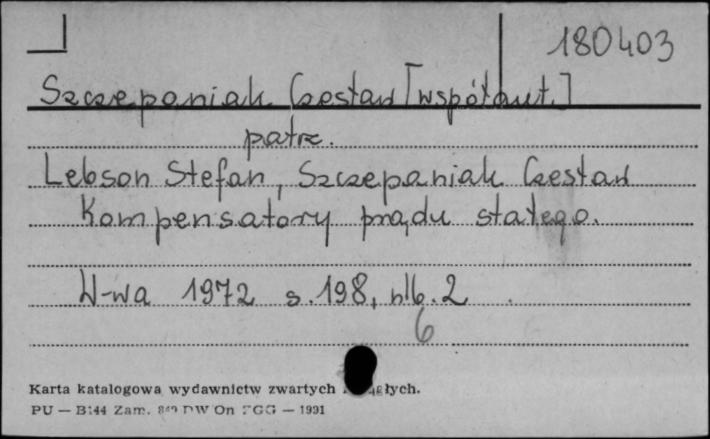 180403
Szczepaniak Czesław [współaut.]
patrz.
Lebson Stefan, Szczepaniak Czesław
Kompensatory prądu stałego.
W-wa 1972 s. 198, nlb. 2
6
Karta katalogowa wydawnictw zwartych
PU — B144 Zam. DW On — 1991